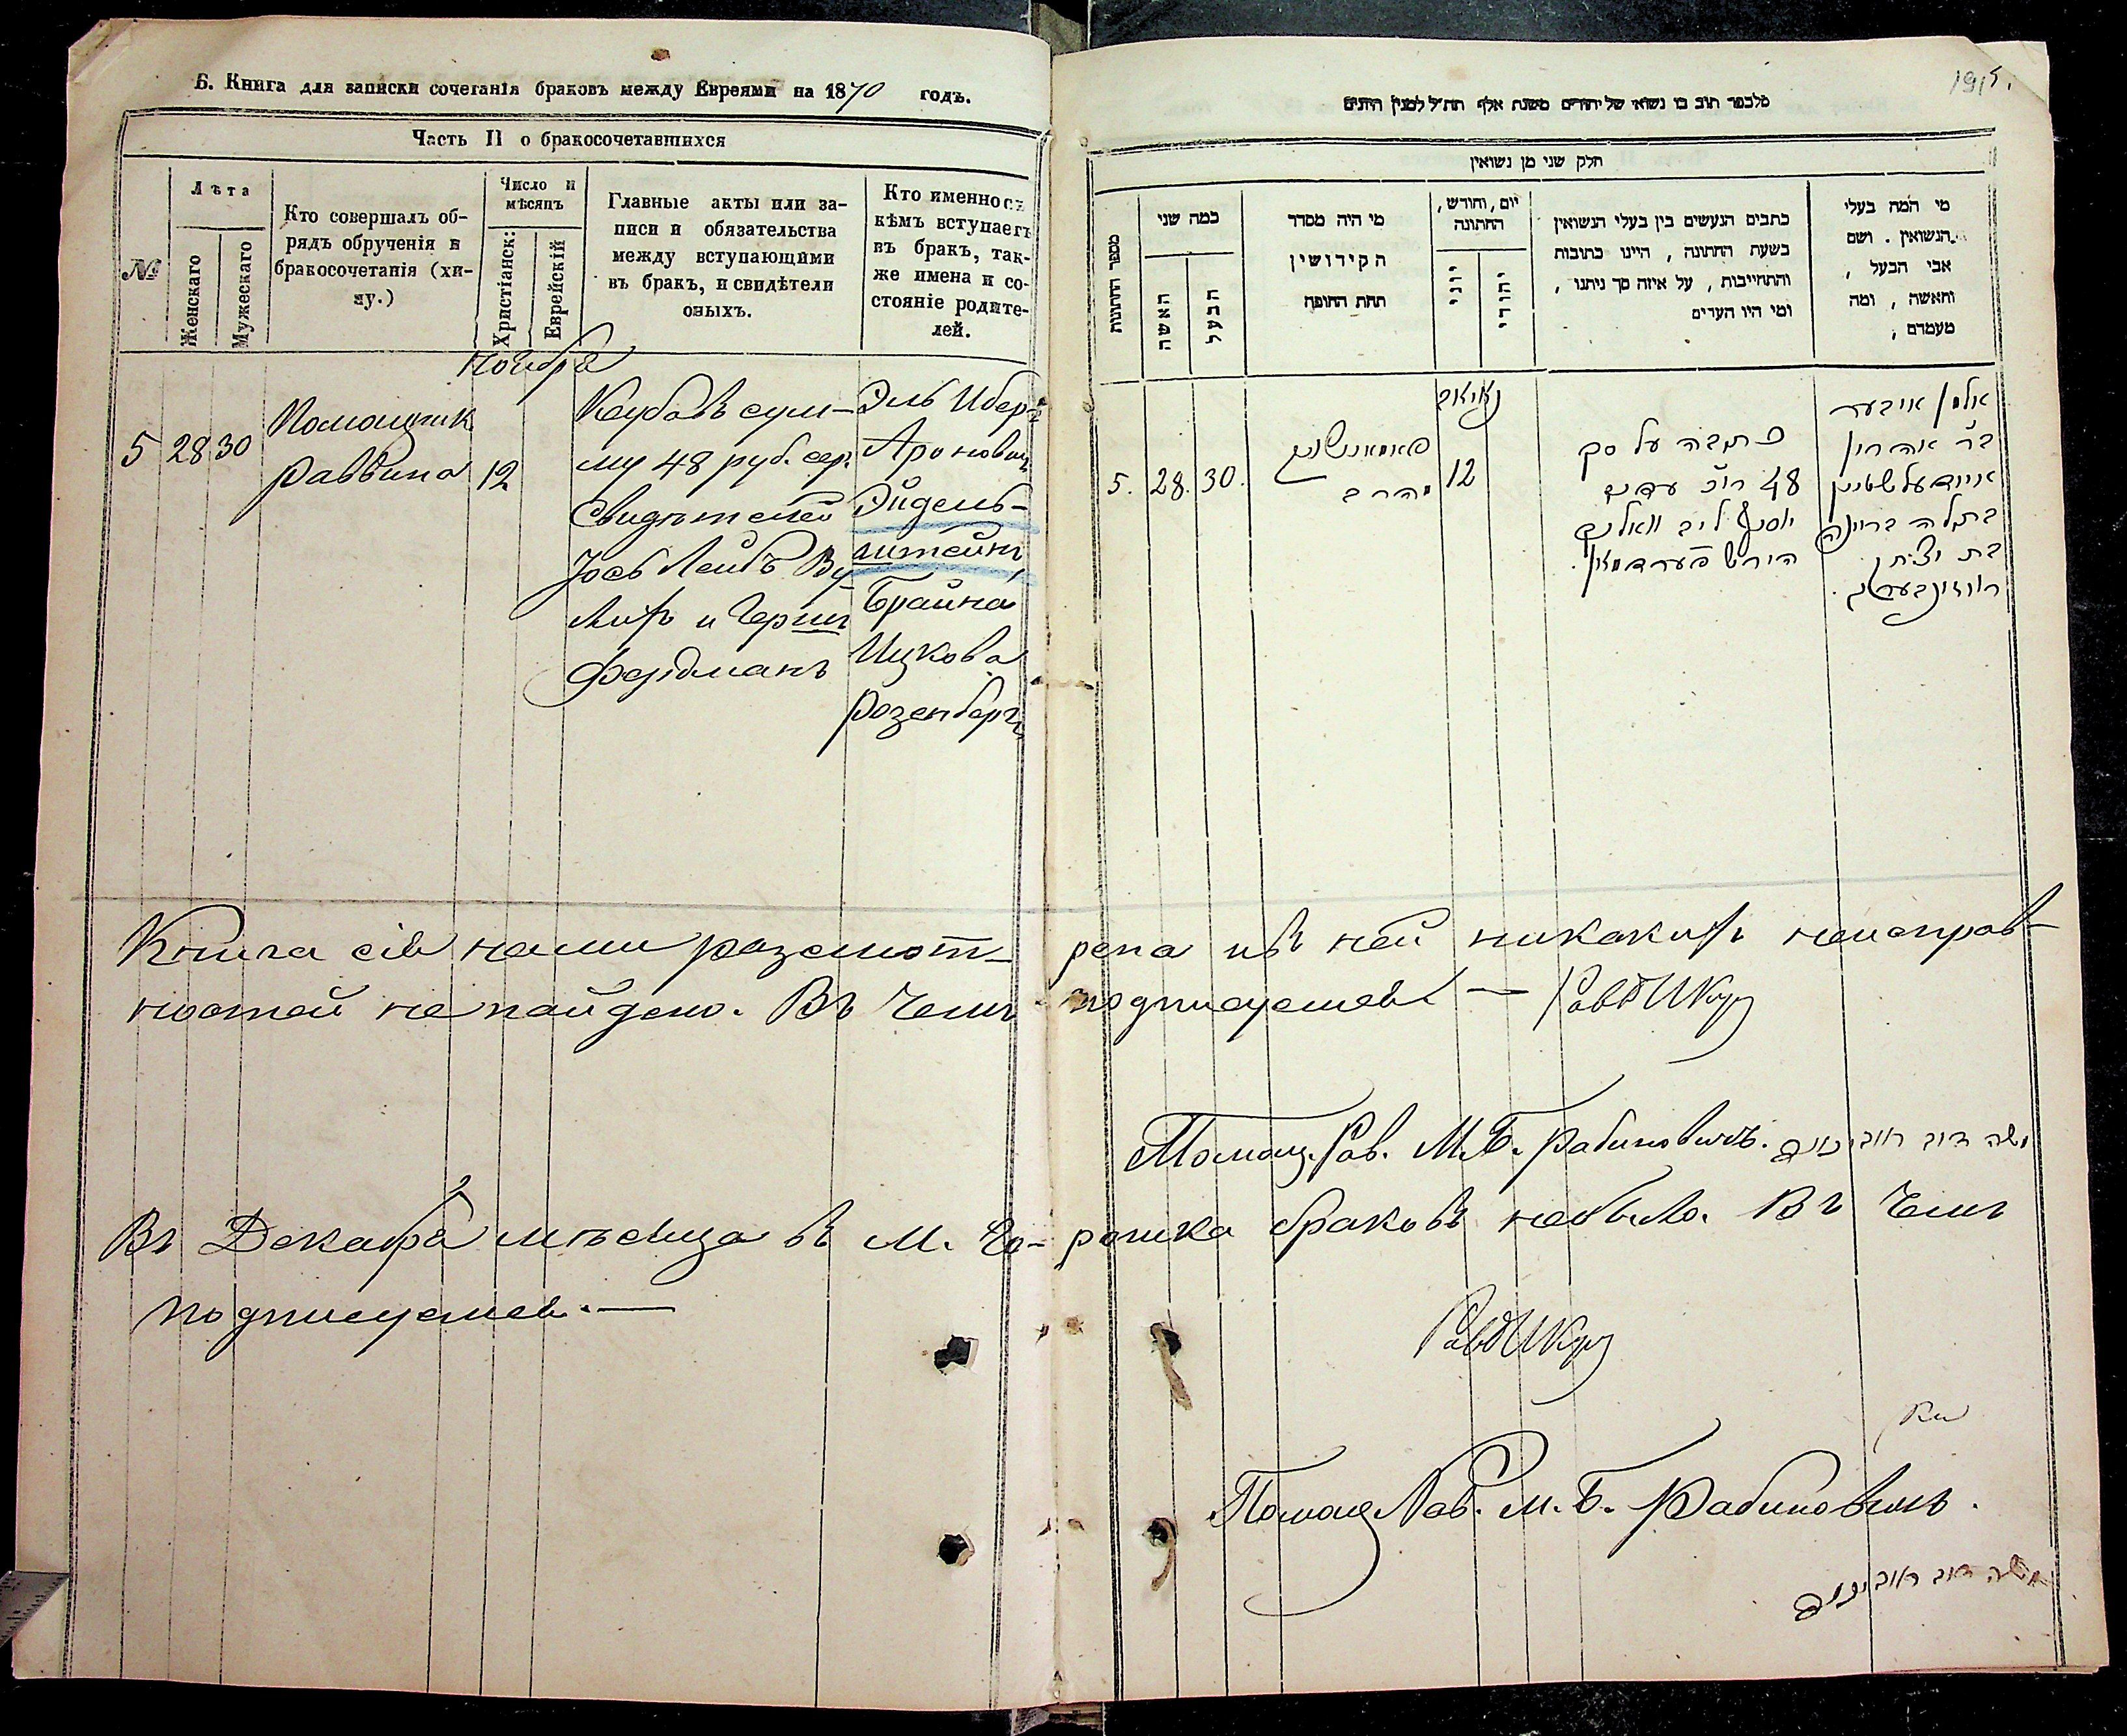 Б. Книга для записки сочетанія браковъ между Евреями на 1870 годъ.
Часть II о бракосочетавшихся
№
Лѣта
Женскаго
Мужескаго
Кто совершалъ об-
рядъ обрученія и
бракосочетанія (хи-
пу.)
Число и
мѣсяцъ
Христіанск:
Еврейскій
Главные акты или за-
писи и обязательства
между вступающими
въ бракъ, и свидѣтели
оныхъ.
Кто именно съ
кѣмъ вступаетъ
въ бракъ, так-
же имена и со-
стояніе родите-
лей.
Ноября
5 28 30
Помощник
Раввина 12
му 48 руб. сер.
Свидѣтелей
Герш
Фердманъ
Эль Иберъ
Аронович
Эйдель-
штейнъ
Брайна
Ицкова
Розенбергъ
1915.
חלק שני מן נשואין
מספר החתונות
כמה שני
האשה
הבעל
מי היה מסדר
הקידושין
תחת החופה
יום, וחודש,
החתונה
יוני
יהודי
כתבים הנעשים בין בעלי הנשואין
בשעת החתונה, היינו כתובות
והתחייבות, על איזה סך ניתנו,
ומי היו העדים
מי המה בעלי
הנשואין. ושם
אבי הבעל,
והאשה, ומה
מעמדם,
5. 28. 30.
12
כתבה על סך
48
יוסף ליב
הירש פערדמאן.
איבער
בר אהרון
איידעלשטיין
בריינה
בת יצחק
ראזינבערג.
Книга сія нами разсмот-рена и въ ней никакихъ неисправ-
ностей не найдено. Въ чемъ подписуемся —
Помощ. Рав. М. Б. Рабиновичъ. משה דוב ראבינאוויץ
Въ Декабрѣ мѣсяца въ м. Го-рошка браковъ небыло. Въ чемъ
подписуемся. —
Помощ Рав. М. Б. Рабиновичъ.
משה דוב ראבינאוויץ